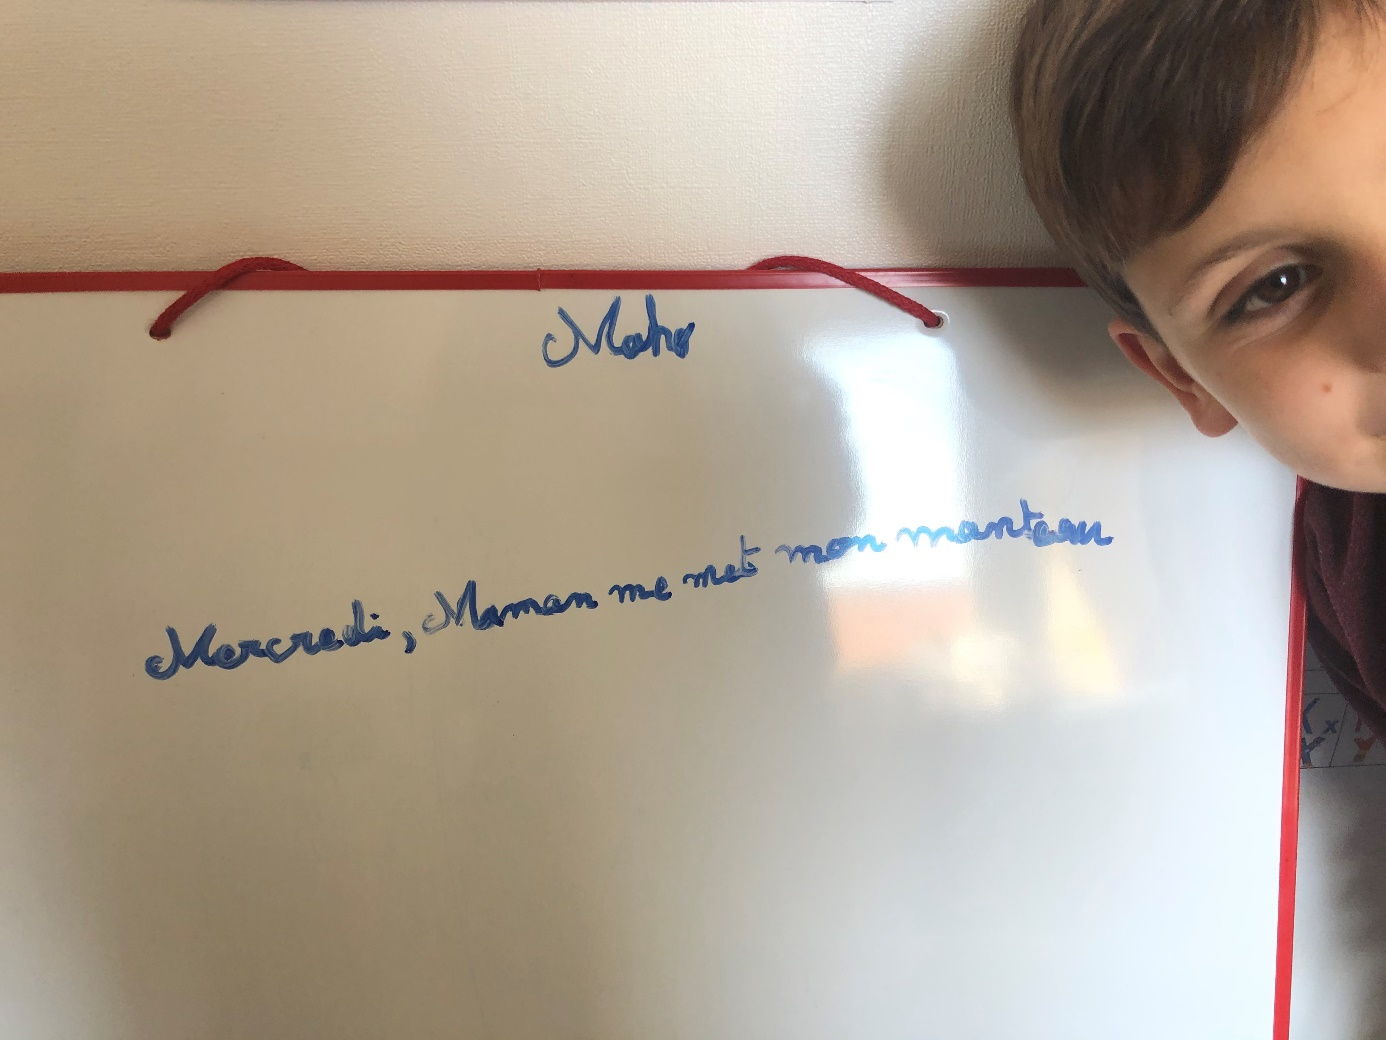 Maho
Mercredi, Maman me met mon manteau
K x
Y